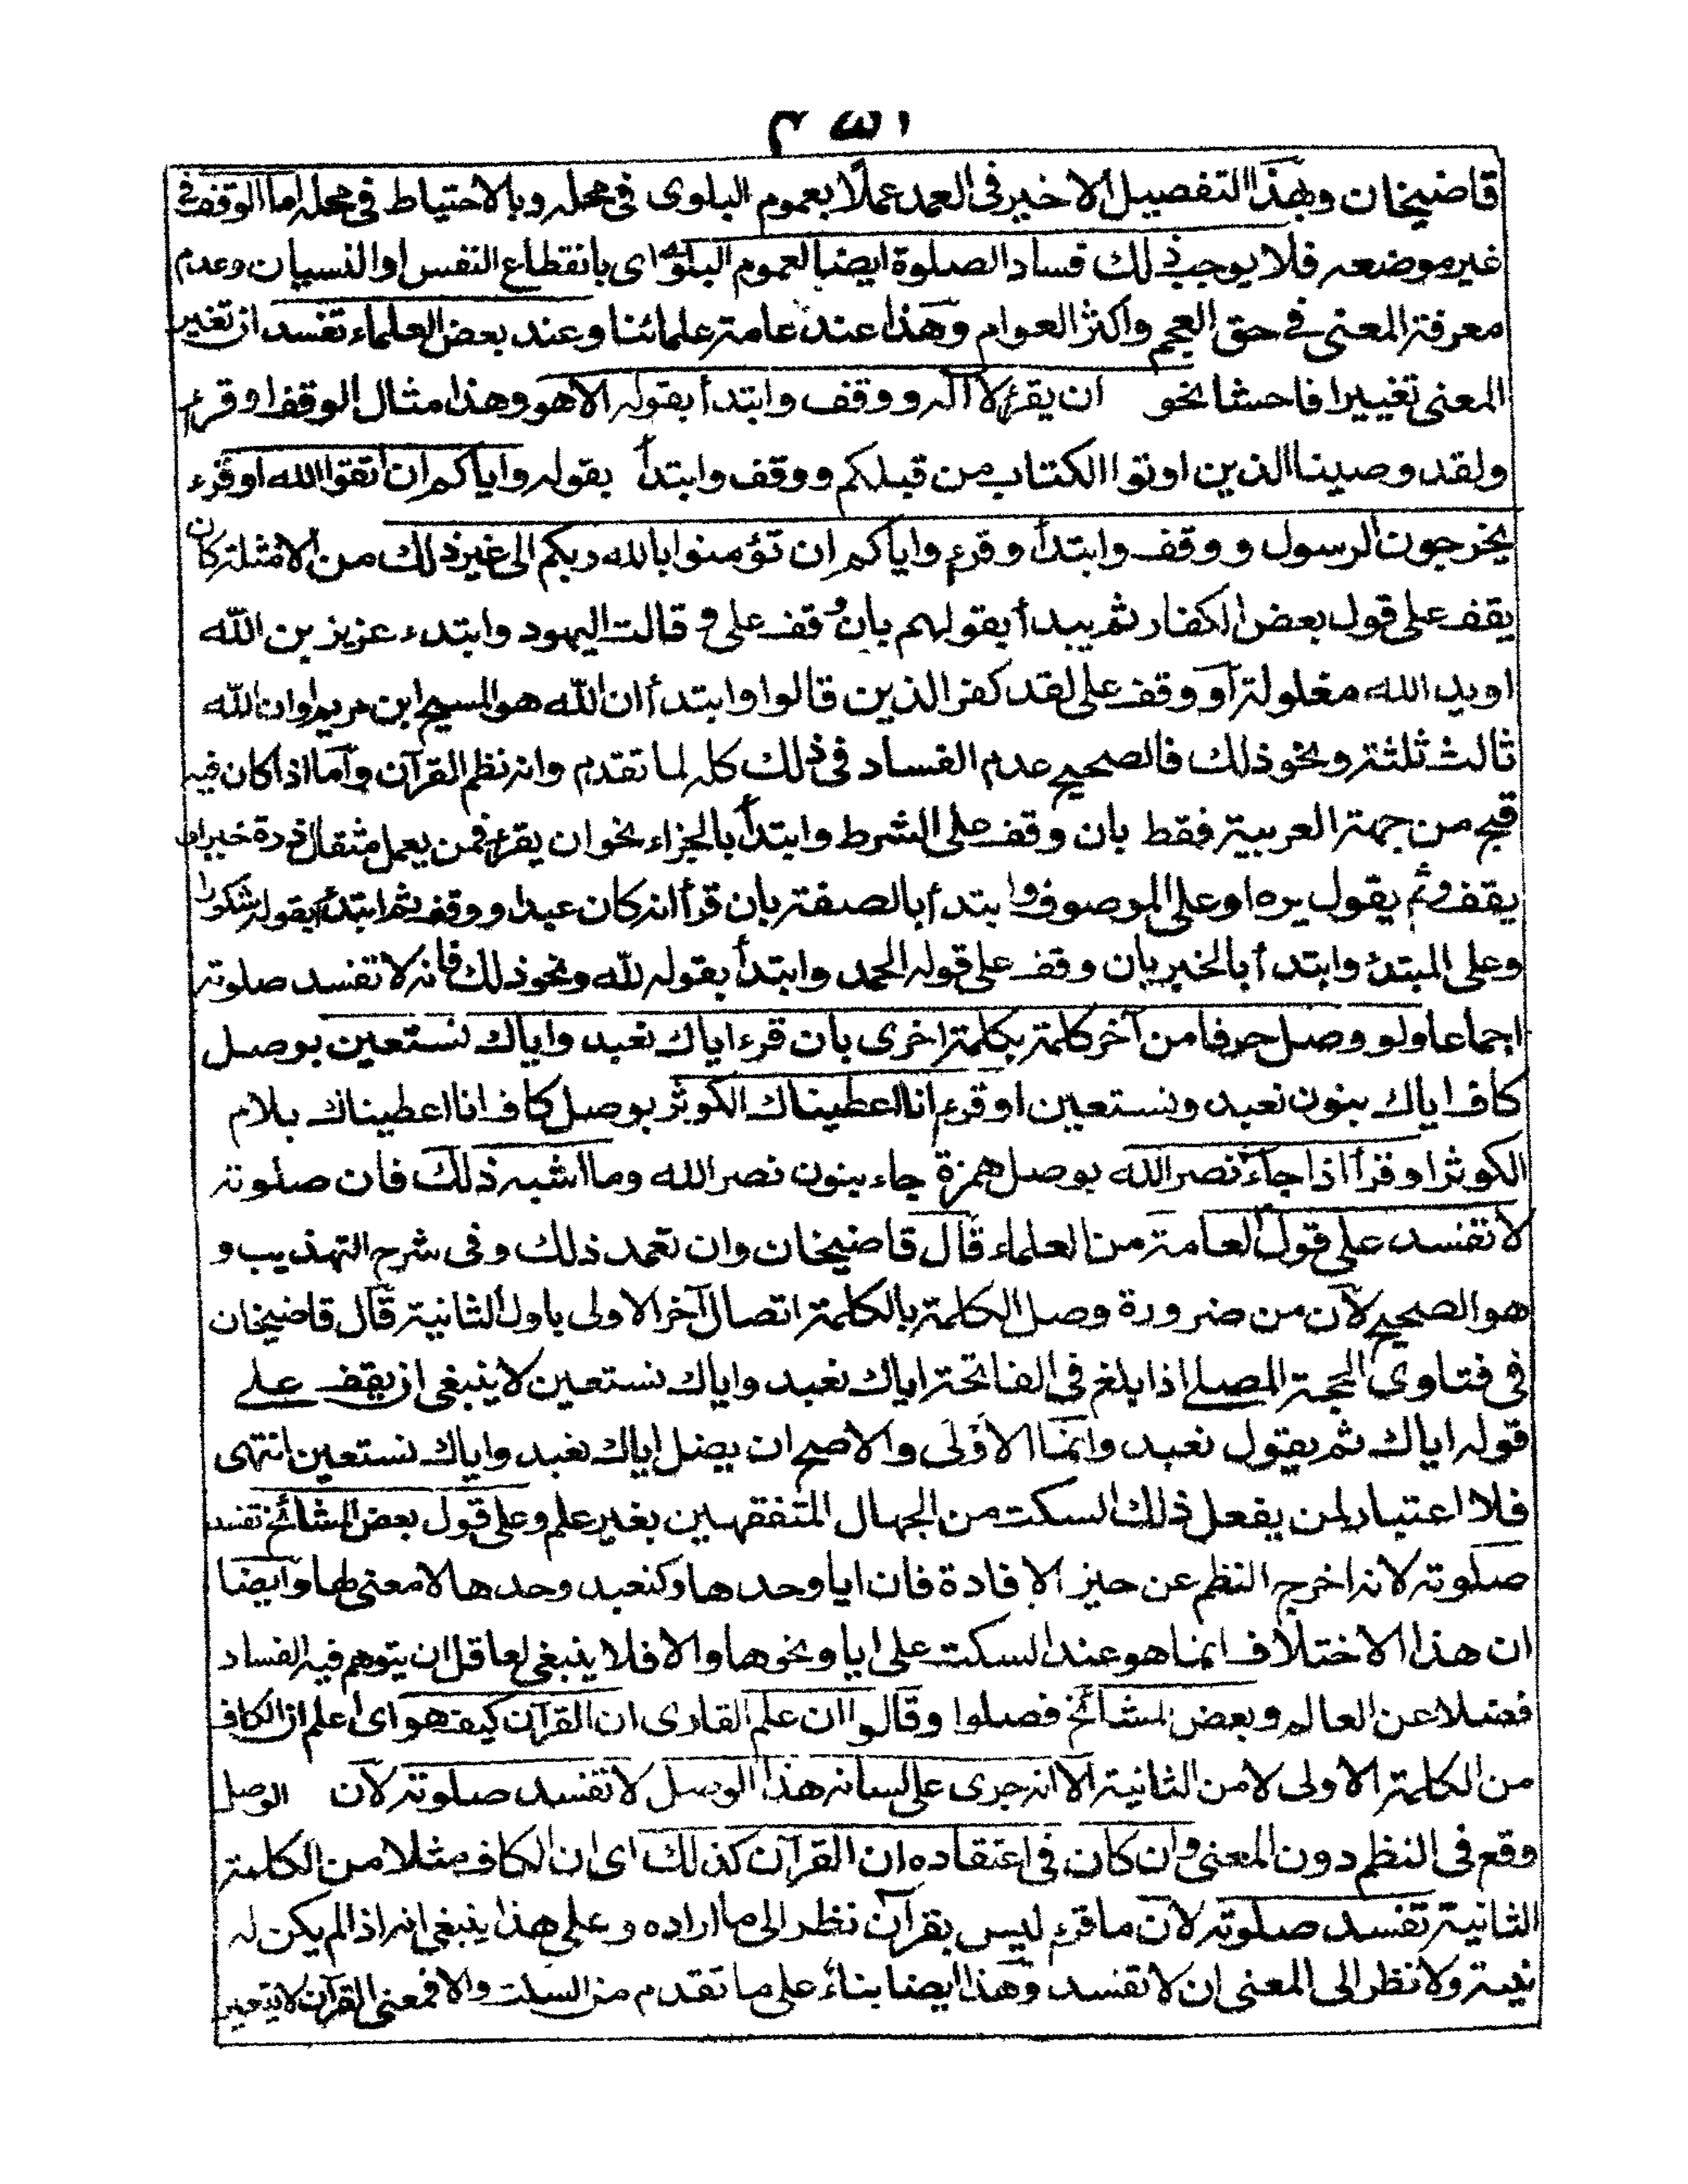 قاضيخان وبهذا التفصيل الاخير فى العمد عملا بعموم البلوى فى محله وبالاحتياط فى محله اما الوقف فى
غير موضعه فلا يوجب ذلك فساد الصلوة ايضا لعموم البلوى اى بانقطاع النفس او النسيان وعدم
معرفة المعنى فى حق العجم واكثر العوام وهذا عند عامة علمائنا وعند بعض العلماء تفسد ان تغير
المعنى تغييرا فاحشا نحو ان يقرء لا اله ووقف وابتدأ بقوله الا هو وهذا مثال الوقف او قرء
ولقد وصينا الذين اوتوا الكتاب من قبلكم ووقف وابتدأ بقوله واياكم ان اتقوا الله او قرء
يخرجون الرسول ووقف وابتدأ وقرء واياكم ان تؤمنوا بالله ربكم الى غير ذلك من الامثلة كان
يقف على قول بعض الكفار ثم يبدأ بقولهم بان وقف على و قالت اليهود وابتدء عزيز بن الله
او يد الله مغلولة أو وقف على لقد كفر الذين قالوا وابتدأ ان الله هو المسيح ابن مريم او ان الله
ثالث ثلثة ونحو ذلك فالصحيح عدم الفساد فى ذلك كله لما تقدم وانه نظم القرآن وأما اذا كان فيه
قبح من جهة العربية فقط بان وقف على الشرط وابتدأ بالجزاء نحو ان يقرء فمن يعمل مثقال ذرة خيرا و
يقف وثم يقول يره او على الموصوف وابتدأ بالصفة بان قرأ انه كان عبدا ووقف ثم ابتدأ بقوله شكورا
وعلى المبتدئ وابتدأ بالخبر بان وقف على قوله الحمد وابتدأ بقوله لله ونحو ذلك فانه لا تفسد صلوته
اجماعا ولو وصل حرفا من آخر كلمة بكلمة اخرى بان قرء اياك نعبد واياك نستعين بوصل
كاف اياك بنون نعبد ونستعين او قرء انا اعطيناك الكوثر بوصل كاف انا اعطيناك بلام
الكوثر او قرأ اذا جاء نصر الله بوصل همزة جاء بنون نصر الله وما اشبه ذلك فان صلوته
لا تفسد على قول العامة من العلماء قال قاضيخان وان تعمد ذلك وفى شرح التهذيب و
هو الصحيح لأن من ضرورة وصل الكلمة بالكلمة اتصال آخر الاولى باول الثانية قال قاضيخان
فى فتاوى الحجة المصلى اذا بلغ فى الفاتحة اياك نعبد واياك نستعين لا ينبغى ان يقف على
قوله اياك ثم يقول نعبد وانما الأولى والاصح ان يصل اياك نعبد واياك نستعين انتهى
فلا اعتبار لمن يفعل ذلك السكت من الجهال المتفقهين بغير علم وعلى قول بعض المشائخ تفسد
صلوته لانه اخرج النظم عن حيز الافادة فان ايا وحدها وكنعبد وحدها لا معنى لها وأيضا
ان هذا الاختلاف انما هو عند السكت على ايا ونحوها والا فلا ينبغى لعاقل ان يتوهم فيه الفساد
فضلا عن العالم وبعض المشائخ فصلوا وقالوا ان علم القارى ان القرآن كيف هو اى اعلم ان الكاف
من الكلمة الاولى لا من الثانية الا انه جرى على لسانه هذا الوصل لا تفسد صلوته لأن الوصل
وقع فى النظم دون المعنى وان كان فى اعتقاده ان القرآن كذلك اى ان الكاف مثلا من الكلمة
الثانية تفسد صلوته لأن ما قرء ليس بقرآن نظر الى ما اراده وعلى هذا ينبغى انه اذا لم يكن له
نية ولا نظر الى المعنى ان لا تفسد وهذا ايضا بناء على ما تقدم من السكت والا فمعنى القرآن لا يتغير